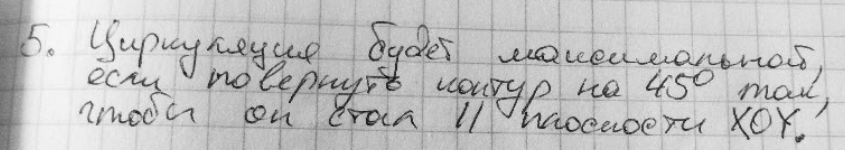 5. Циркуляция будет максимальной,
если повернуть контур на 45° так,
чтобы он стал || плоскости XOY.